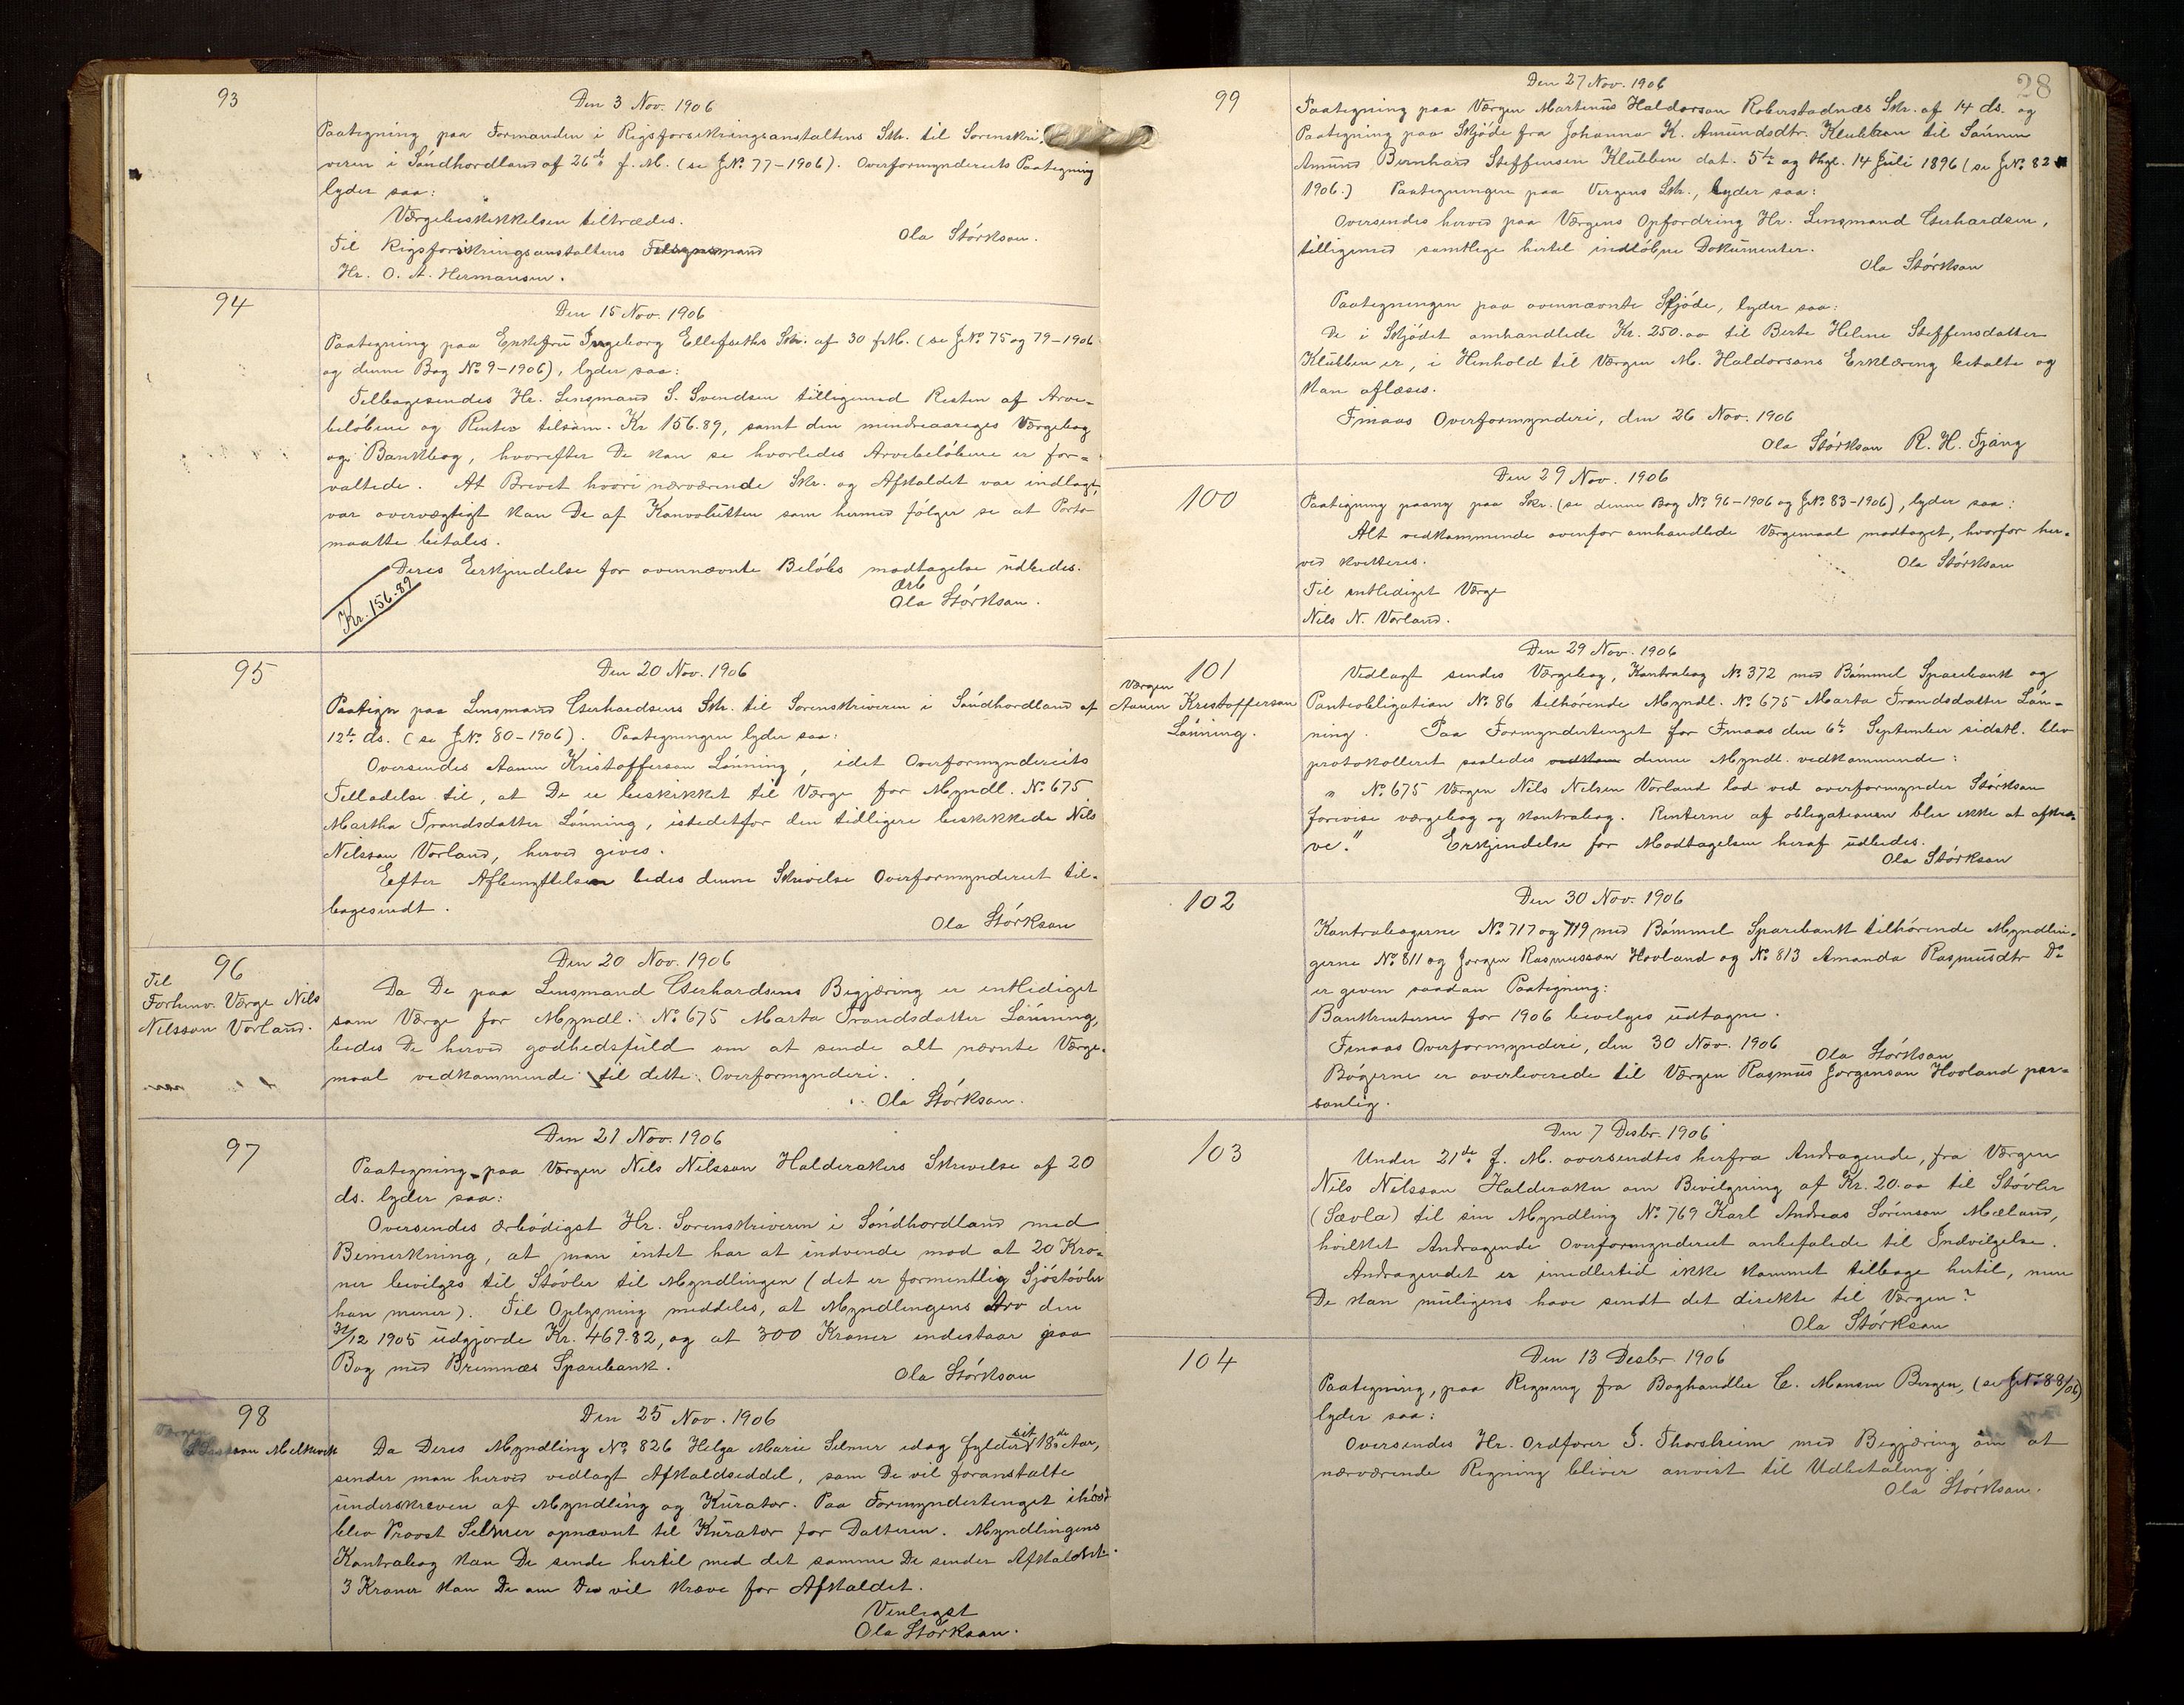 93
Den 3 Nov. 1906
Paategning paa Formanden i Rigsforsikringsanstaltens Skr. til Sorenskri-
veren i Söndhordland af 26de f. M. (se J.No. 77-1906). Overformynderiets Paategning
lyder saa:
Værgebeskikkelsen tiltrædes.
Ola Störkson.
Til Rigsforsikringsanstaltens Tilsynsmand
Hr. O. A. Hermansen.
94
Den 15 Nov. 1906
Paategning paa Enkefru Ingeborg Ellefseths Skr. af 30 f.M. (se J.No. 75 og 79-1906
og denne Bog No. 9-1906), lyder saa:
Tilbagesendes Hr. Lensmand S. Svendsen tilligemed Resten af Arve-
belöbene og Renter tilsam. Kr 156.89, samt den mindreaariges Værgebog
og Bankbog, hvorefter De kan se hvorledes Arvebelöbene er for-
valtede. At Brevet hvori nærværende Skr. og Afkaldet var indlagt,
var overvægtigt kan De af Konvolutten som hermed fölger se at Porto
maatte betales.
Deres Erkjendelse for ovennævnte Belöbs modtagelse udbedes.
Ærb
Ola Störkson.
Kr. 156.89
95
Den 20 Nov. 1906
Paategn paa Lensmand Gerhardsens Skr. til Sorenskriveren i Söndhordland af
12te ds. (se J.No. 80-1906). Paategningen lyder saa:
Oversendes Aamun Kristofferson Lönning, idet Overformynderiets
Tilladelse til, at De er beskikket til Værge for Myndl. No. 675
Martha Trondsdatter Lönning, istedetfor den tidligere beskikkede Nils
Nilsson Vorland, herved gives.
Eefter Afbenyttelsen bedes denne Skrivelse Overformynderiet til-
bagesendt.
Ola Störkson
96
Til
Forhenv. Værge Nils
Nilsson Vorland.
Den 20 Nov. 1906
Da De paa Lensmand Gerhardsens Begjæring er entlediget
som Værge for Myndl. No. 675 Marta Trondsdatter Lönning,
bedes De herved godhedsfuld om at sende alt nævnte Værge-
maal vedkommende til dette Overformynderi.
Ola Störkson.
97
Den 21 Nov. 1906
Paategning paa Værgen Nils Nilsson Halderakers Skrivelse af 20
ds. lyder saa:
Oversendes ærbödigst Hr. Sorenskriveren i Söndhordland med
Bemerkning, at man intet har at indvende mod at 20 Kro-
ner bevilges til Stövler til Myndlingen (det er formentlig Sjöstövler
han mener). Til Oplysning meddeles, at Myndlingens Arv den
31/12 1905 udgjorde Kr. 469.82, og at 300 Kroner indestaar paa
Bog med Bremnæs Sparebank.
Ola Störkson
98
Værgen
Melkevik
Den 25 Nov. 1906
Da Deres Myndling No. 826 Helga Marie Selmer idag fylder sit 18de Aar,
sender man herved vedlagt Afkaldseddel, som De vil foranstalte
underskreven af Myndling og Kurator. Paa Formyndertinget ihöst
blev Provst Selmer opnævnt til Kurator for Datteren. Myndlingens
Kontrabog kan De sende hertil med det samme De sender Afkaldet.
3 Kroner kan De om De vil kræve for Afkaldet.
Venligst
Ola Störkson.
28
99
Den 27 Nov. 1906
Paategning paa Værgen Martinus Haldorson Roberstadnæs Skr. af 14 ds. og
Paategning paa Skjöde fra Johanna K. Amundsdtr. Klubben til Sönnen
Amund Bernhard Steffensen Klubben dat. 5te og thgl. 14 Juli 1896 (se J.No. 82
1906.) Paategningen paa Vergens Skr., lyder saa:
Oversendes herved paa Værgens Opfordring Hr. Lensmand Gerhardsen,
tilligemed samtlige hertil indlöbne Dokumenter.
Ola Störkson
Paategningen paa ovennævnte Skjöde, lyder saa:
De i Skjödet omhandlede Kr. 250.oo til Berte Heline Steffensdatter
Klubben er, i Henhold til Værgen M. Haldorsons Erklæring betalte og
kan aflæses.
Finaas Overformynderi, den 26 Nov. 1906
Ola Störkson R. H. Tjång
100
Den 29 Nov. 1906
Paategning paany paa Skr. (se denne Bog No. 96-1906 og J.No. 83-1906), lyder saa:
Alt vedkommende ovenfor omhandlede Værgemaal modtaget, hvorfor her-
ved kvitteres.
Ola Störkson
Til entlediget Værge
Nils N. Vorland.
101
Værgen
Aamun Kristofferson
Lönning.
Den 29 Nov. 1906
Vedlagt sendes Værgebog, Kontrabog No. 372 med Bömmel Sparebank og
Panteobligation No. 86 tilhörende Myndl. No. 675 Marta Trondsdatter Lön-
ning. Paa Formyndertinget for Finaas den 6te September sidstl. blev
protokolleret saaledes vedkom denne Myndl. vedkommende:
" No. 675 Værgen Nils Nilsen Vorland lod ved overformynder Störkson
forevise værgebog og kontrabog. Renterne af obligationen blir ikke at afkræ-
ve." Erkjendelse for Modtagelsen heraf udbedes.
Ola Störkson
102
Den 30 Nov. 1906
Kontrabogerne No. 717 og 719 med Bömmel Sparebank tilhörende Myndlin-
gerne No. 811 og Jorgen Rasmusson Hovland og No. 813 Amanda Rasmusdtr Do
er given saadan Paategning:
Bankrenterne for 1906 bevilges udtagne.
Finaas Overformynderi, den 30 Nov. 1906
Ola Störkson
Bögerne er overleverede til Værgen Rasmus Jorgenson Hovland per-
sonlig.
103
Den 7 Desbr. 1906
Under 21de f. M. oversendtes herfra Andragende, fra Værgen
Nils Nilsson Halderaker om Bevilgning af Kr. 20.oo til Stövler
(Sævla) til sin Myndling No. 769 Karl Andreas Sörenson Mæland,
hvilket Andragende Overformynderiet anbefalede til Indvilgelse.
Andragendet er imedlertid ikke kommet tilbage hertil, men
De kan muligens have sendt det direkte til Værgen?
Ola Störkson
104
Den 13 Desbr 1906
Paategning, paa Regning fra Boghandler C. Monsen Bergen, (se J.No. 88/06)
lyder saa:
Oversendes Hr. Ordförer S. Thorsheim med Begjæring om at
nærværende Regning bliver anvist til Udbetaling.
Ola Störkson.